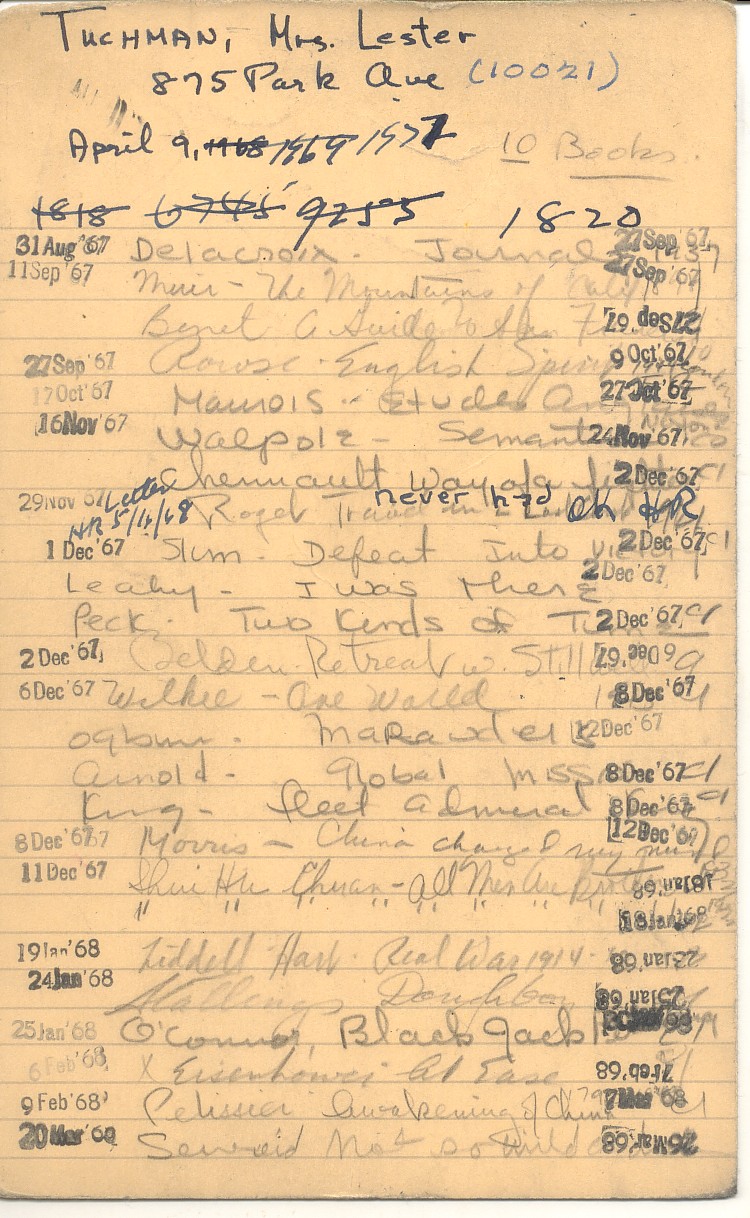 TUCHMAN, Mrs. Lester
875 Park Ave (10021)
April 9, 1968 1969 1971
10 Books.
1818 6745 9255 1820
31 Aug '67 Delacroix. Journal 27 Sep '67
11 Sep '67 Muir - The Mountains of Calif 27 Sep '67
Benet A Guide to San F 27 Sep '67
27 Sep '67 Rowse - English Spirit 9 Oct '67
17 Oct '67 Maurois - Etudes 27 Oct '67
16 Nov '67 Walpole - 24 Nov '67
Chennault Way of a 2 Dec '67
29 Nov '67 Letter never had OK HR
HR 5/1/68 Roget Travel in
1 Dec '67 Slim. Defeat Into Victory 2 Dec '67
Leahy - I was There 2 Dec '67
Peck. Two Kinds of Time 2 Dec '67
2 Dec '67 Belden. Retreat w. Stilwell 6 Dec '67
6 Dec '67 Willkie - One World 8 Dec '67
Ogburn. Marauders 12 Dec '67
Arnold - Global Mission 8 Dec '67
King - Fleet Admiral 8 Dec '67
8 Dec '67 Morris - China changed my mind 12 Dec '67
11 Dec '67 Shui Hu Chuan - All Men Are Brothers 18 Jan '68
" " " " " " " 18 Jan '68
19 Jan '68 Liddell Hart. Real War 1914 - 23 Jan '68
24 Jan '68 Stallings Doughboys 25 Jan '68
25 Jan '68 O'Connor, Black Jack
6 Feb '68 X Eisenhower At Ease 7 Feb '68
9 Feb '68 Pelissier Awakening of China 7 Mar '68
20 Mar '68 Sevareid Not so Wild a 26 Mar '68